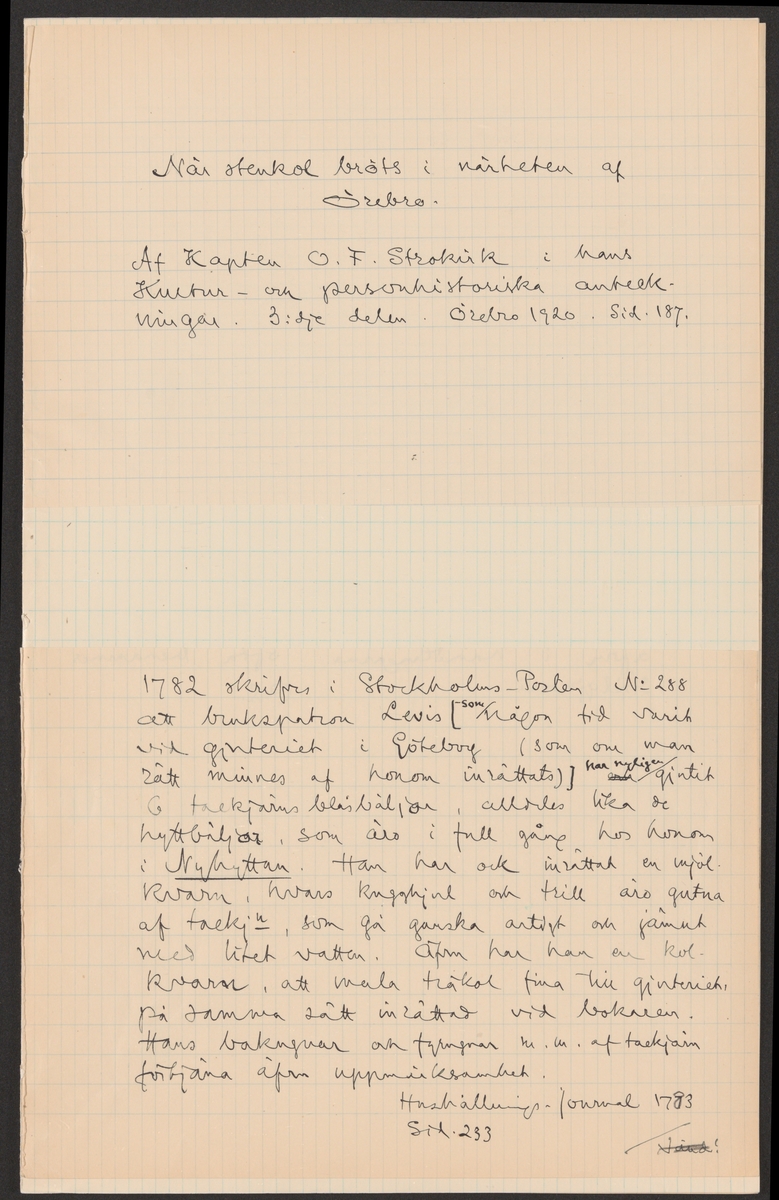 När stenkol bröts i närheten af
Örebro.
Af Kapten O. F. Strokirk i hans
Kultur- och personhistoriska anteck-
ningar. 3:dje delen. Örebro 1920. Sid. 187.
1782 skrifves i Stockholms-Posten No 288
att brukspatron Levis [som någon tid varit
vid gjuteriet i Göteborg (som om man
rätt minnes af honom inrättats)] har nyligen gjutit
6 tackjärns blåsbäljor, alldeles lika de
hyttbäljor, som äro i full gång hos honom
i Nyhyttan. Han har ock inrättat en mjöl-
kvarn, hvars kugghjul och trill äro gjutna
af tackjn, som gå ganska artigt och jämnt
med litet vatten. Äfven har han en kol-
kvarn, att mala träkol fina till gjuteriet,
på samma sätt inrättad vid bokaren.
Hans bakugnar och fyrugnar m.m. af tackjärn
förtjäna äfven uppmärksamhet.
Hushållnings-journal 1783
Sid. 233